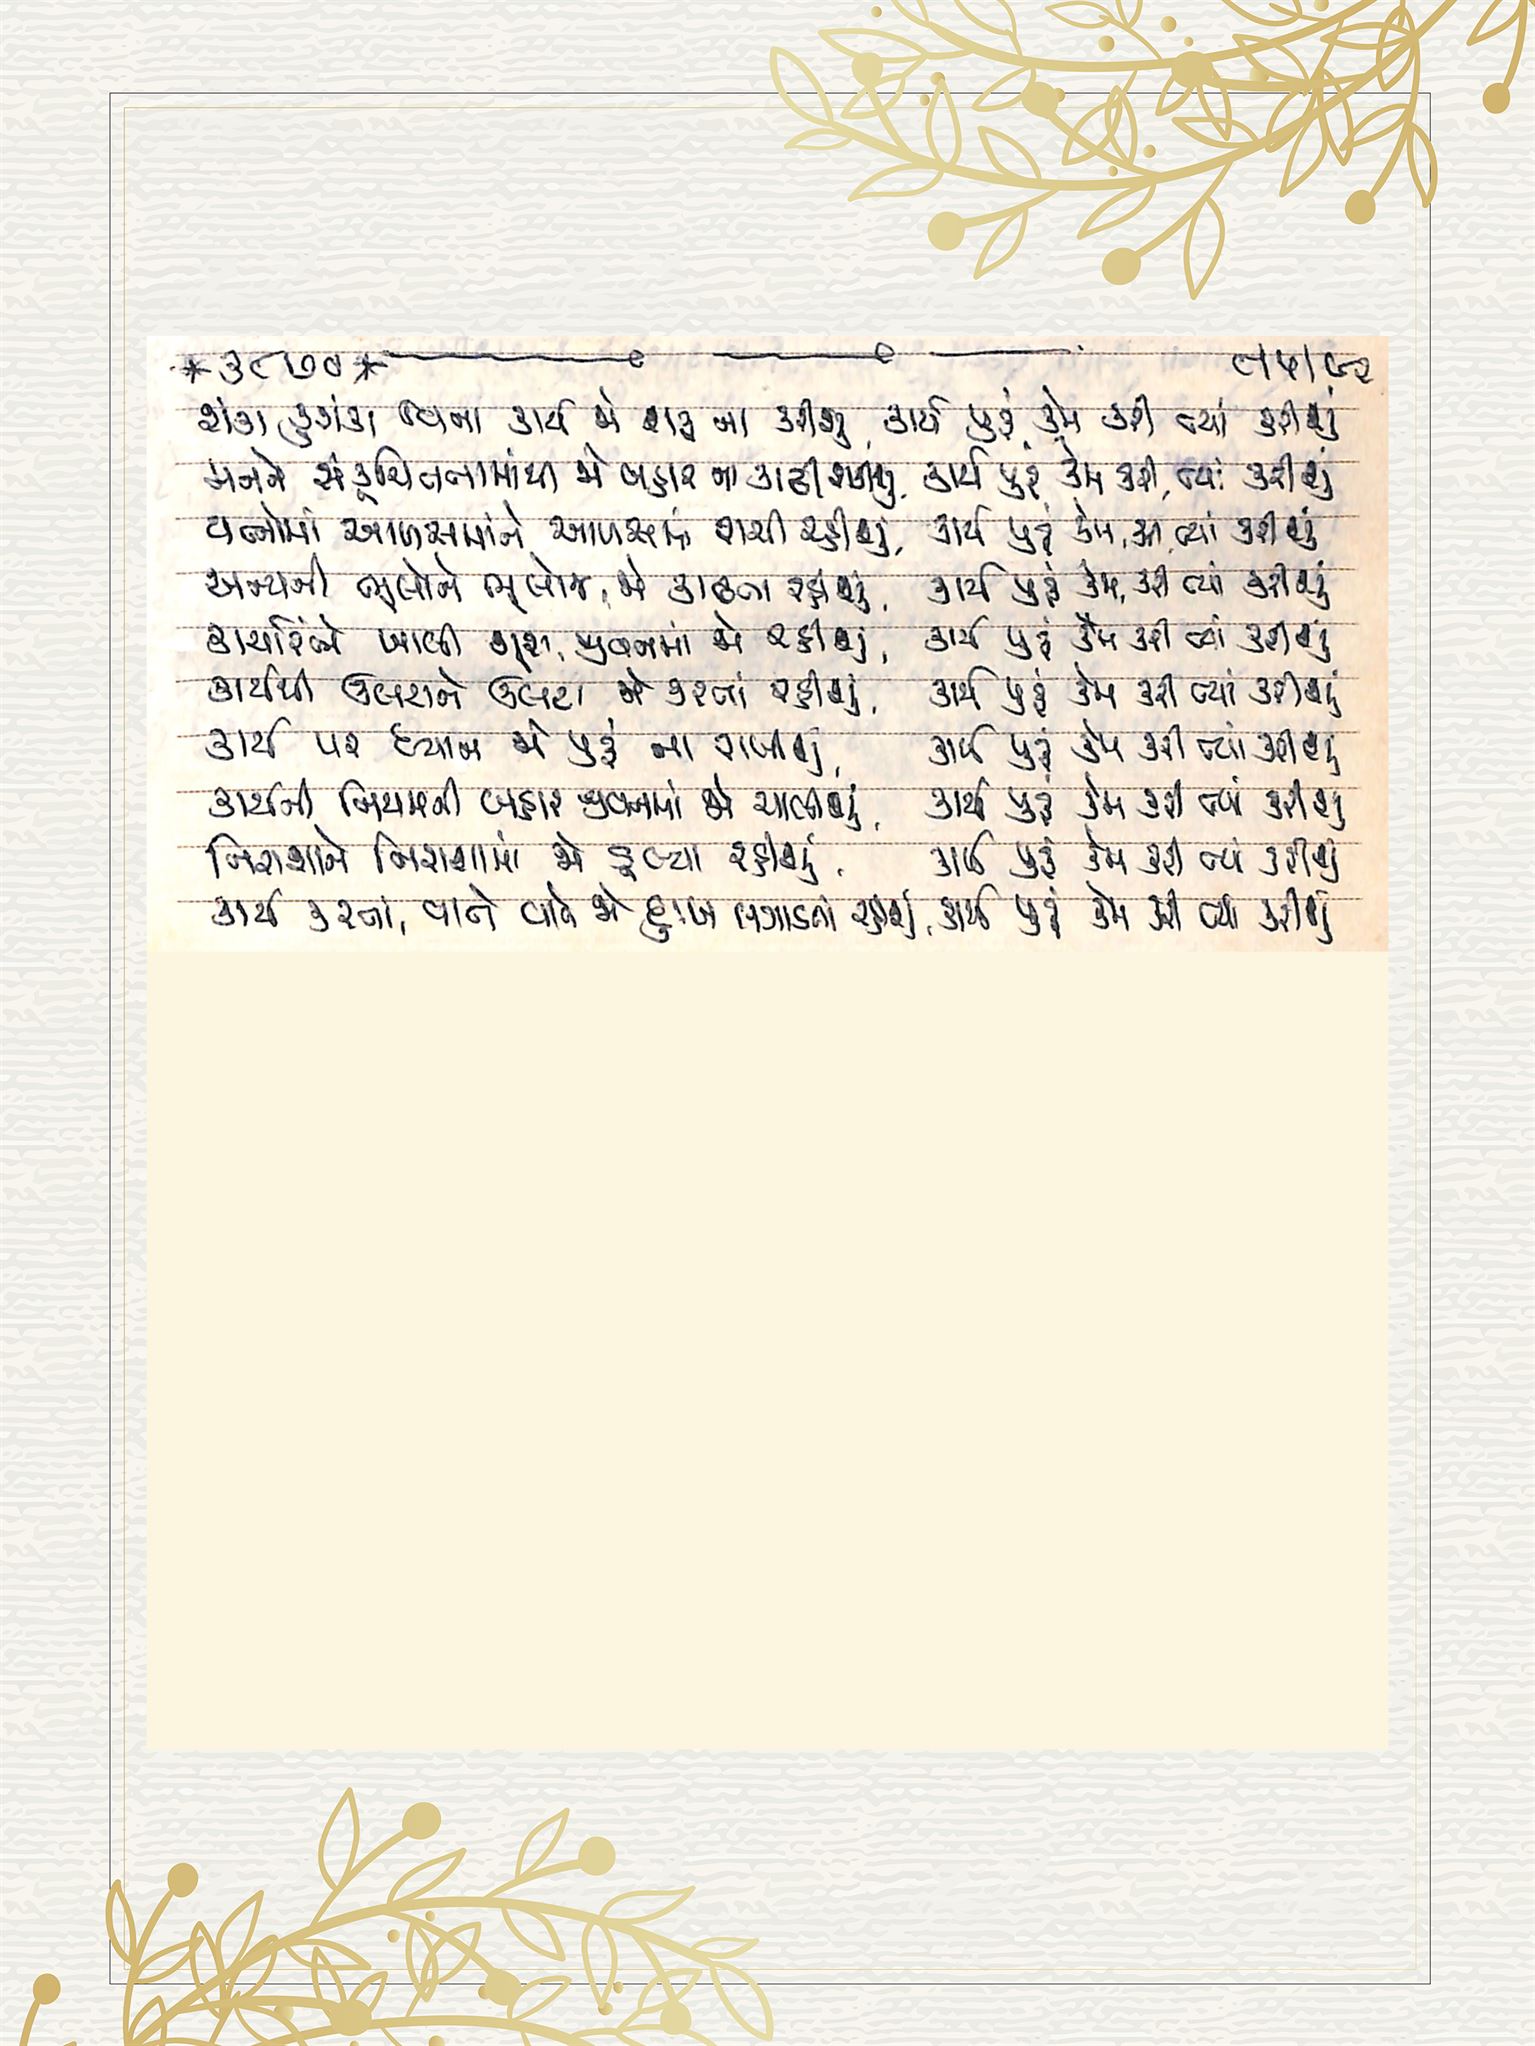 *૩૮૭૦* ૯|૫|૯૨
શંકા કુશંકા વિના કાર્ય જો શરૂ ના કરીશું, કાર્ય પુરૂં કેમ કરી ત્યાં કરીશું
મનને સંકૂચિતતામાંથી જો બહાર ના કાઢી શકીશું, કાર્ય પુરૂં કેમ કરી, ત્યાં કરીશું
યત્નોમાં આળસમાંને આળસમાં રાચી રહીશું, કાર્ય પુરૂં કેમ, કરી, ત્યાં કરીશું
અન્યની ભૂલોને ભૂલોજ, જો કાઢતા રહીશું, કાર્ય પુરૂં કેમ, કરી ત્યાં કરીશું
ખાલી જીવનમાં જો રહીશું, કાર્ય પુરૂં કેમ કરી ત્યાં કરીશું
કાર્યથી ઉલટાને ઉલટા જો કરતાં રહીશું, કાર્ય પુરૂં કેમ કરી ત્યાં કરીશું
કાર્ય પર ધ્યાન જો પુરૂં ના રાખીશું, કાર્ય પુરૂં કેમ કરી ત્યાં કરીશું
કાર્યની નિયમની બહાર જીવનમાં જો ચાલીશું, કાર્ય પુરૂં કેમ કરી ત્યાં કરીશું
નિરાશાને નિરાશામાં જો ડૂબ્યા રહીશું, કાર્ય પુરૂં કેમ કરી ત્યાં કરીશું
કાર્ય કરતા, વાતે વાતે જો દુઃખ લગાડતાં રહીશું, કાર્ય પુરૂં કેમ કરી ત્યાં કરીશું